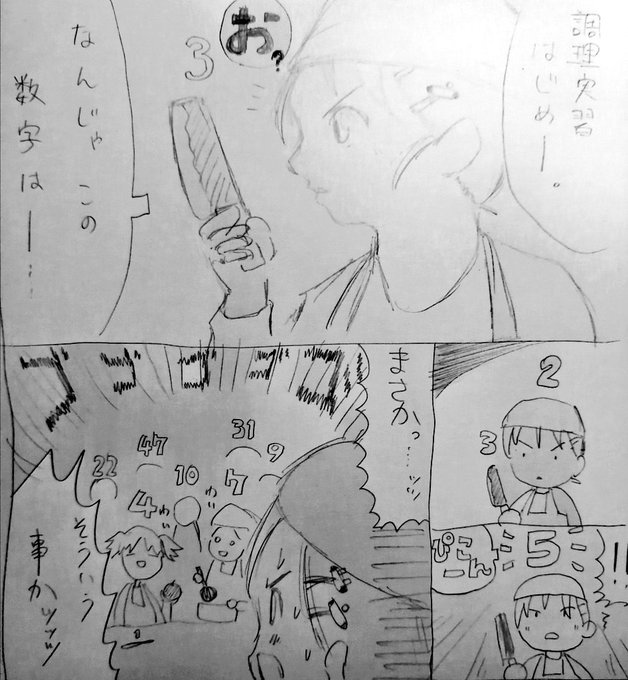 調理実習
はじめー。
お?
3
なんじゃ この
数字はー…
2
3
ぴこん
5
!!
まさかっ…ッッ
31
9
7
47
10
22
4
わい
わい
そういう
事かッッッ